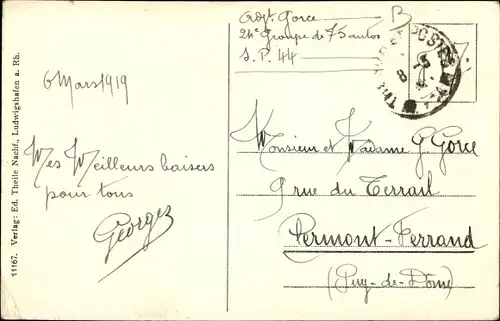 11167. Verlag: Ed. Theile Nachf., Ludwigshafen a. Rh.
6 Mars 1919
Mes Meilleurs baisers
pour tous
Georges
Gorce
24e Groupe de 75 autos
S.P. 44
B
TRESOR ET POSTES
Monsieur et Madame G. Gorce
9 rue du Terrail
Clermont-Ferrand
(Puy-de-Dôme)